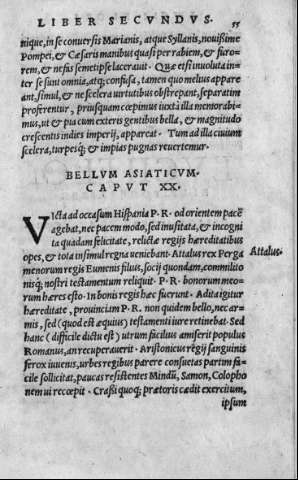 LIBER SECVNDVS. 55
nique, in se conuersis Marianis, atque Syllanis, nouissime
Pompei, & Cæsaris manibus quasi per rabiem, & furo-
rem, & nefas semetipse lacerauit. Quæ etsi inuoluta in-
ter se sunt omnia, atq; confusa, tamen quo melius appare
ant, simul, & ne scelera uirtutibus obstrepant, separatim
proferentur, priusquam cœpimus iuxtà illa memorabi-
mus, ut & pia cum exteris gentibus bella, & magnitudo
crescentis indies imperij, appareat. Tum ad illa ciuium
scelera, turpesq; & impias pugnas reuertemur.
BELLVM ASIATICVM.
CAPVT XX.
VIcta ad occasum Hispania P. R. od orientem pacē
agebat, nec pacem modo, sed inusitata, & incogni
ta quadam felicitate, relictæ regijs hæreditatibus
opes, & tota insimul regna ueniebant. Attalus rex Perga
Attalus.
menorum regis Eumenis filius, socij quondam, commilito
nisq; nostri testamentum reliquit. P. R. bonorum meo-
rum hæres esto. In bonis regis hæc fuerunt. Adita igitur
hæreditate, prouinciam P. R. non quidem bello, nec ar-
mis, sed (quod est æquius) testamenti iure retinebat. Sed
hanc (difficile dictu est) utrum facilius amiserit populus
Romanus, an recuperauerit. Aristonicus regij sanguinis
ferox iuuenis, urbes regibus parere consuetas partim fa-
cile sollicitat, paucas resistentes Mindū, Samon, Colopho
nem ui recœpit. Crassi quoq; prætoris cædit exercitum,
ipsum